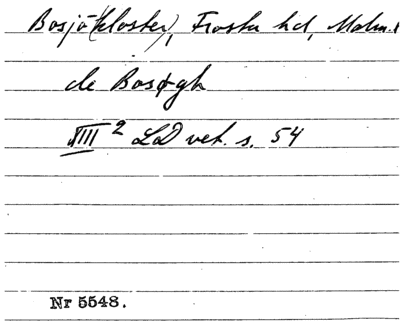 Bosjö(kloster), Frosta hd, Malm.
de Bosøgh
XIII 2 LD vet. s. 54
Nr 5548.